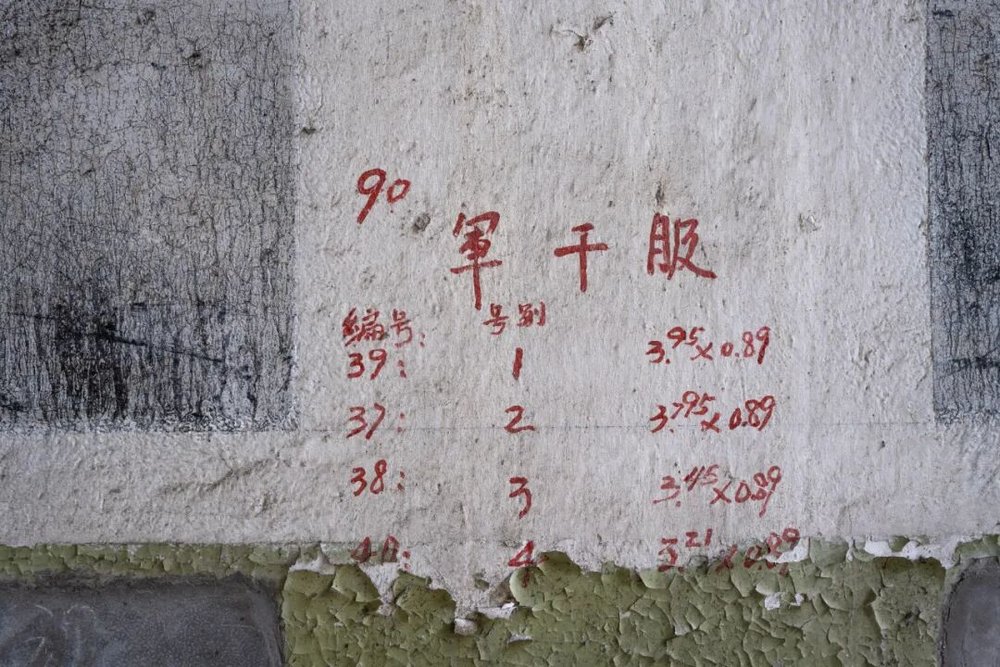 90
軍干服
编号: 号别
39: 1 3.95×0.89
37: 2 3.795×0.89
38: 3 3.45×0.89
4 ×0.89